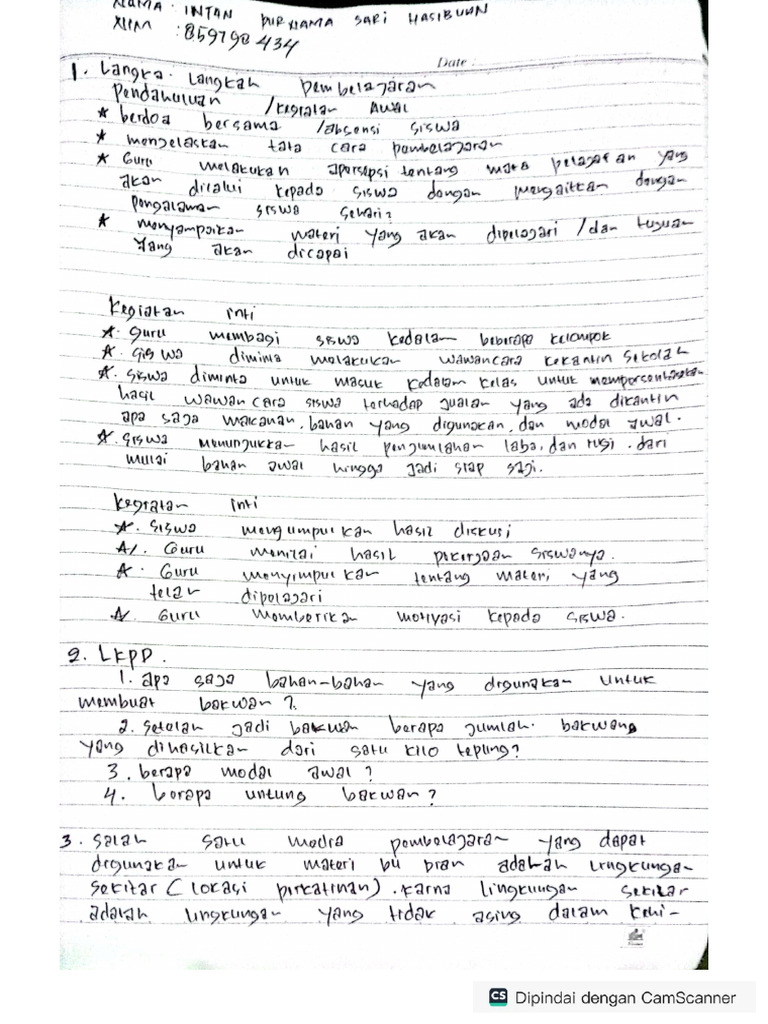 NAMA : INTAN PURNAMA SARI HASIBUAN
NIM : 859798434
Date :
1. Langka-Langkah pembelajaran
Pendahuluan /kegiatan Awal
* berdoa bersama /absensi siswa
* menjelaskan tata cara pembelajaran
* Guru melakukan apersepsi tentang mata pelajaran yang
akan dilalui kepada siswa dengan mengaitkan dengan
pengalaman siswa sehari2
* menyampaikan materi yang akan dipelajari /dan tujuan
yang akan dicapai
kegiatan inti
*. guru membagi siswa kedalam beberapa kelompok
*. siswa diminta melakukan wawancara kekantin sekolah
*. siswa diminta untuk masuk kedalam kelas untuk mempersentasekan
hasil wawancara siswa terhadap jualan yang ada dikantin
apa saja makanan, bahan yang digunakan, dan modal awal.
*. siswa menunjukkan hasil penjumlahan laba, dan rugi. dari
mulai bahan awal hingga jadi siap saji.
kegiatan inti
*. siswa mengumpulkan hasil diskusi
*. Guru menilai hasil pekerjaan siswanya.
*. Guru menyimpulkan tentang materi yang
telah dipelajari
*. Guru memberikan motivasi kepada siswa.
2. LKPD.
1. apa saja bahan-bahan yang digunakan untuk
membuat bakwan ?.
2. setelah jadi bakwan berapa jumlah bakwang
yang dihasilkan dari satu kilo tepung?
3. berapa modal awal ?
4. berapa untung bakwan ?
3. salah satu media pembelajaran yang dapat
digunakan untuk materi adalah lingkungan
sekitar (lokasi). karna lingkungan sekitar
adalah lingkungan yang tidak asing dalam kehi-
CS Dipindai dengan CamScanner